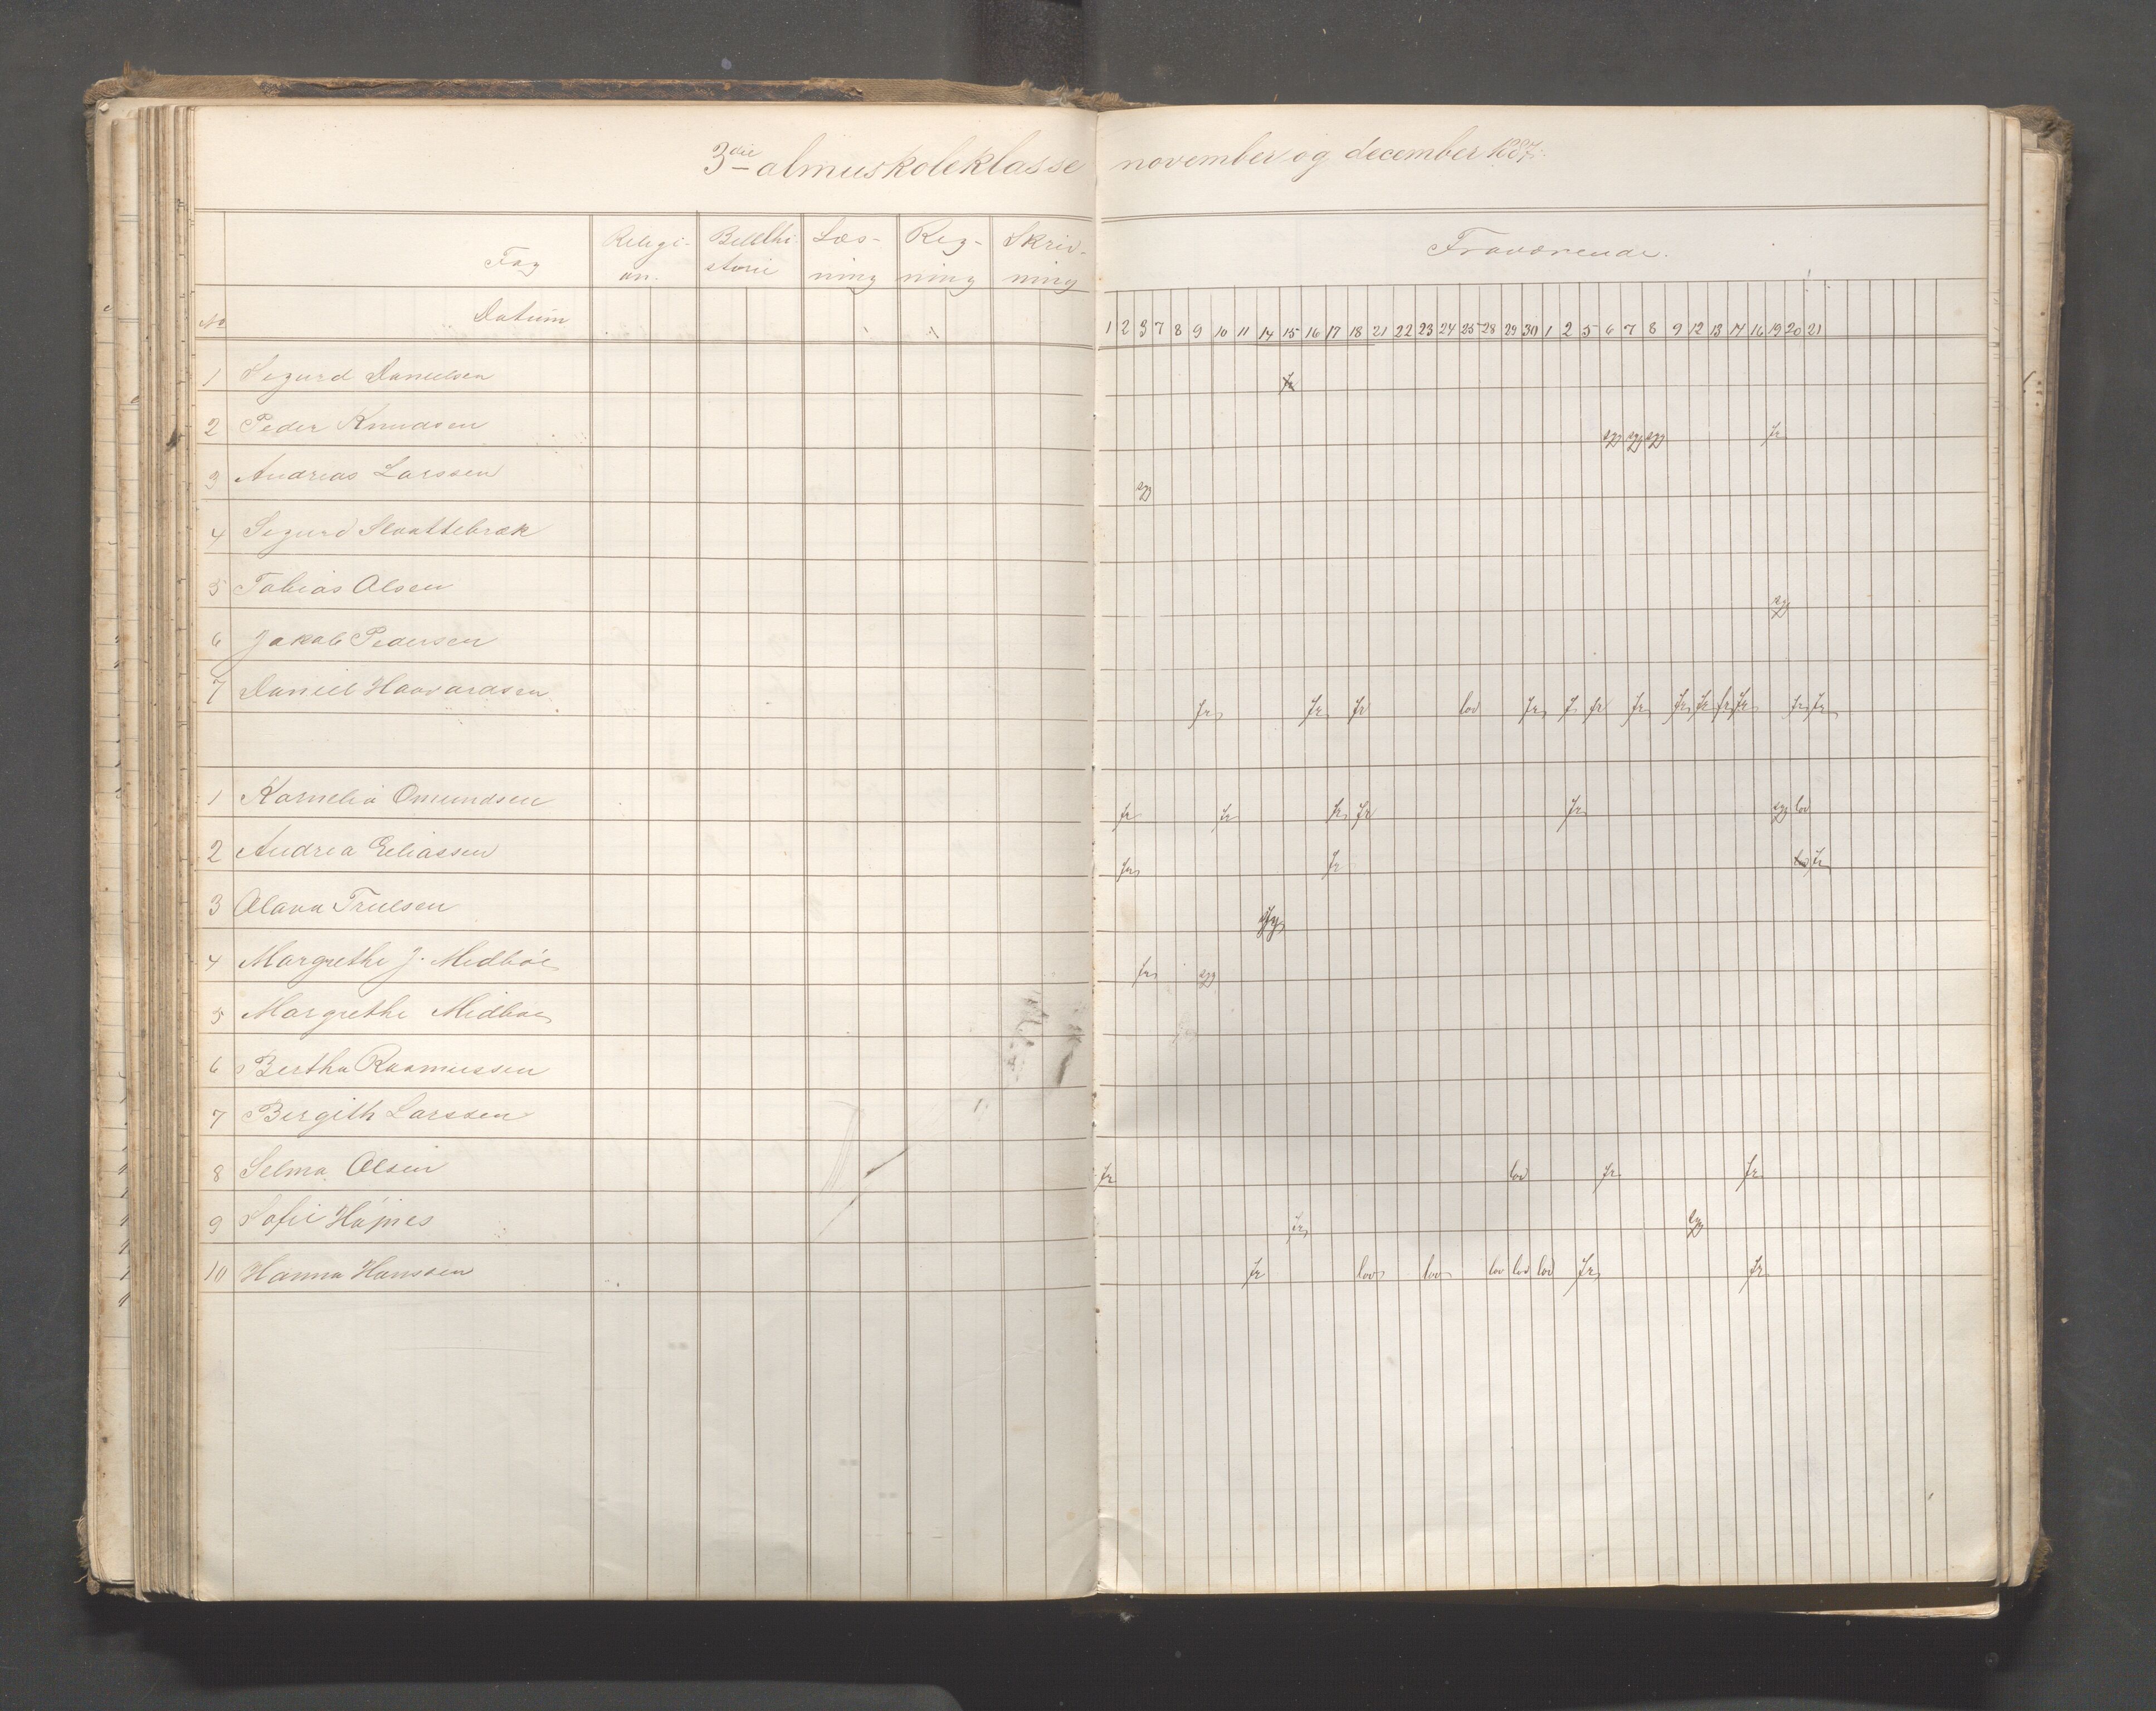 3die almuskoleklasse november og december 1887.
Fag Religi-on. Bibelhi-storie Læs-ning Reg-ning Skriv-ning Fraværende.
No Datum 1 2 3 7 8 9 10 11 14 15 16 17 18 21 22 23 24 25 28 29 30 1 2 5 6 7 8 9 12 13 14 16 19 20 21
1 Sigurd Danielsen fr
2 Peder Knudsen syg syg syg fr
3 Andreas Larssen syg
4 Sigurd Slaattebræk
5 Tobias Olsen syg
6 Jakob Pedersen
7 Daniel Haavardsen fr fr fr lov fr fr fr fr fr fr fr fr fr fr
1 Kornelia Omundsen fr fr fr fr fr syg lov
2 Andrea Eeliassen fr fr lov fr
3 Olava Truelsen syg
4 Margrethe J. Midbøe fr syg
5 Margrethe Midbøe
6 Bertha Rasmussen
7 Bergith Larssen
8 Selma Olsen fr lov fr fr
9 Sofie Højnes fr syg
10 Hanna Hanssen fr lov lov lov lov lov fr fr